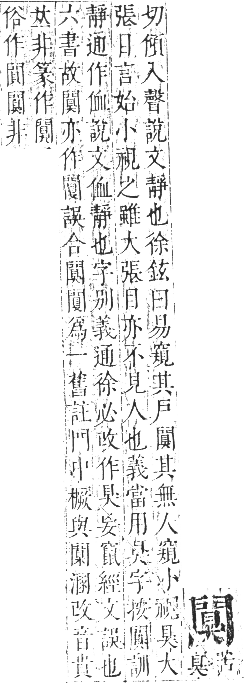 闃
苦
狊
切傾入聲說文靜也徐鉉曰易窺其戶闃其無人窺小視狊大
張目言始小視之雖大張目亦不見人也義當用狊字按闃訓
靜通作侐說文侐靜也字別義通徐必改作狊妄竄經文誤也
六書故闃亦作誤合闃爲一舊註門中橛與闑溷改音貴
𠀤非篆作闃
俗作闃非